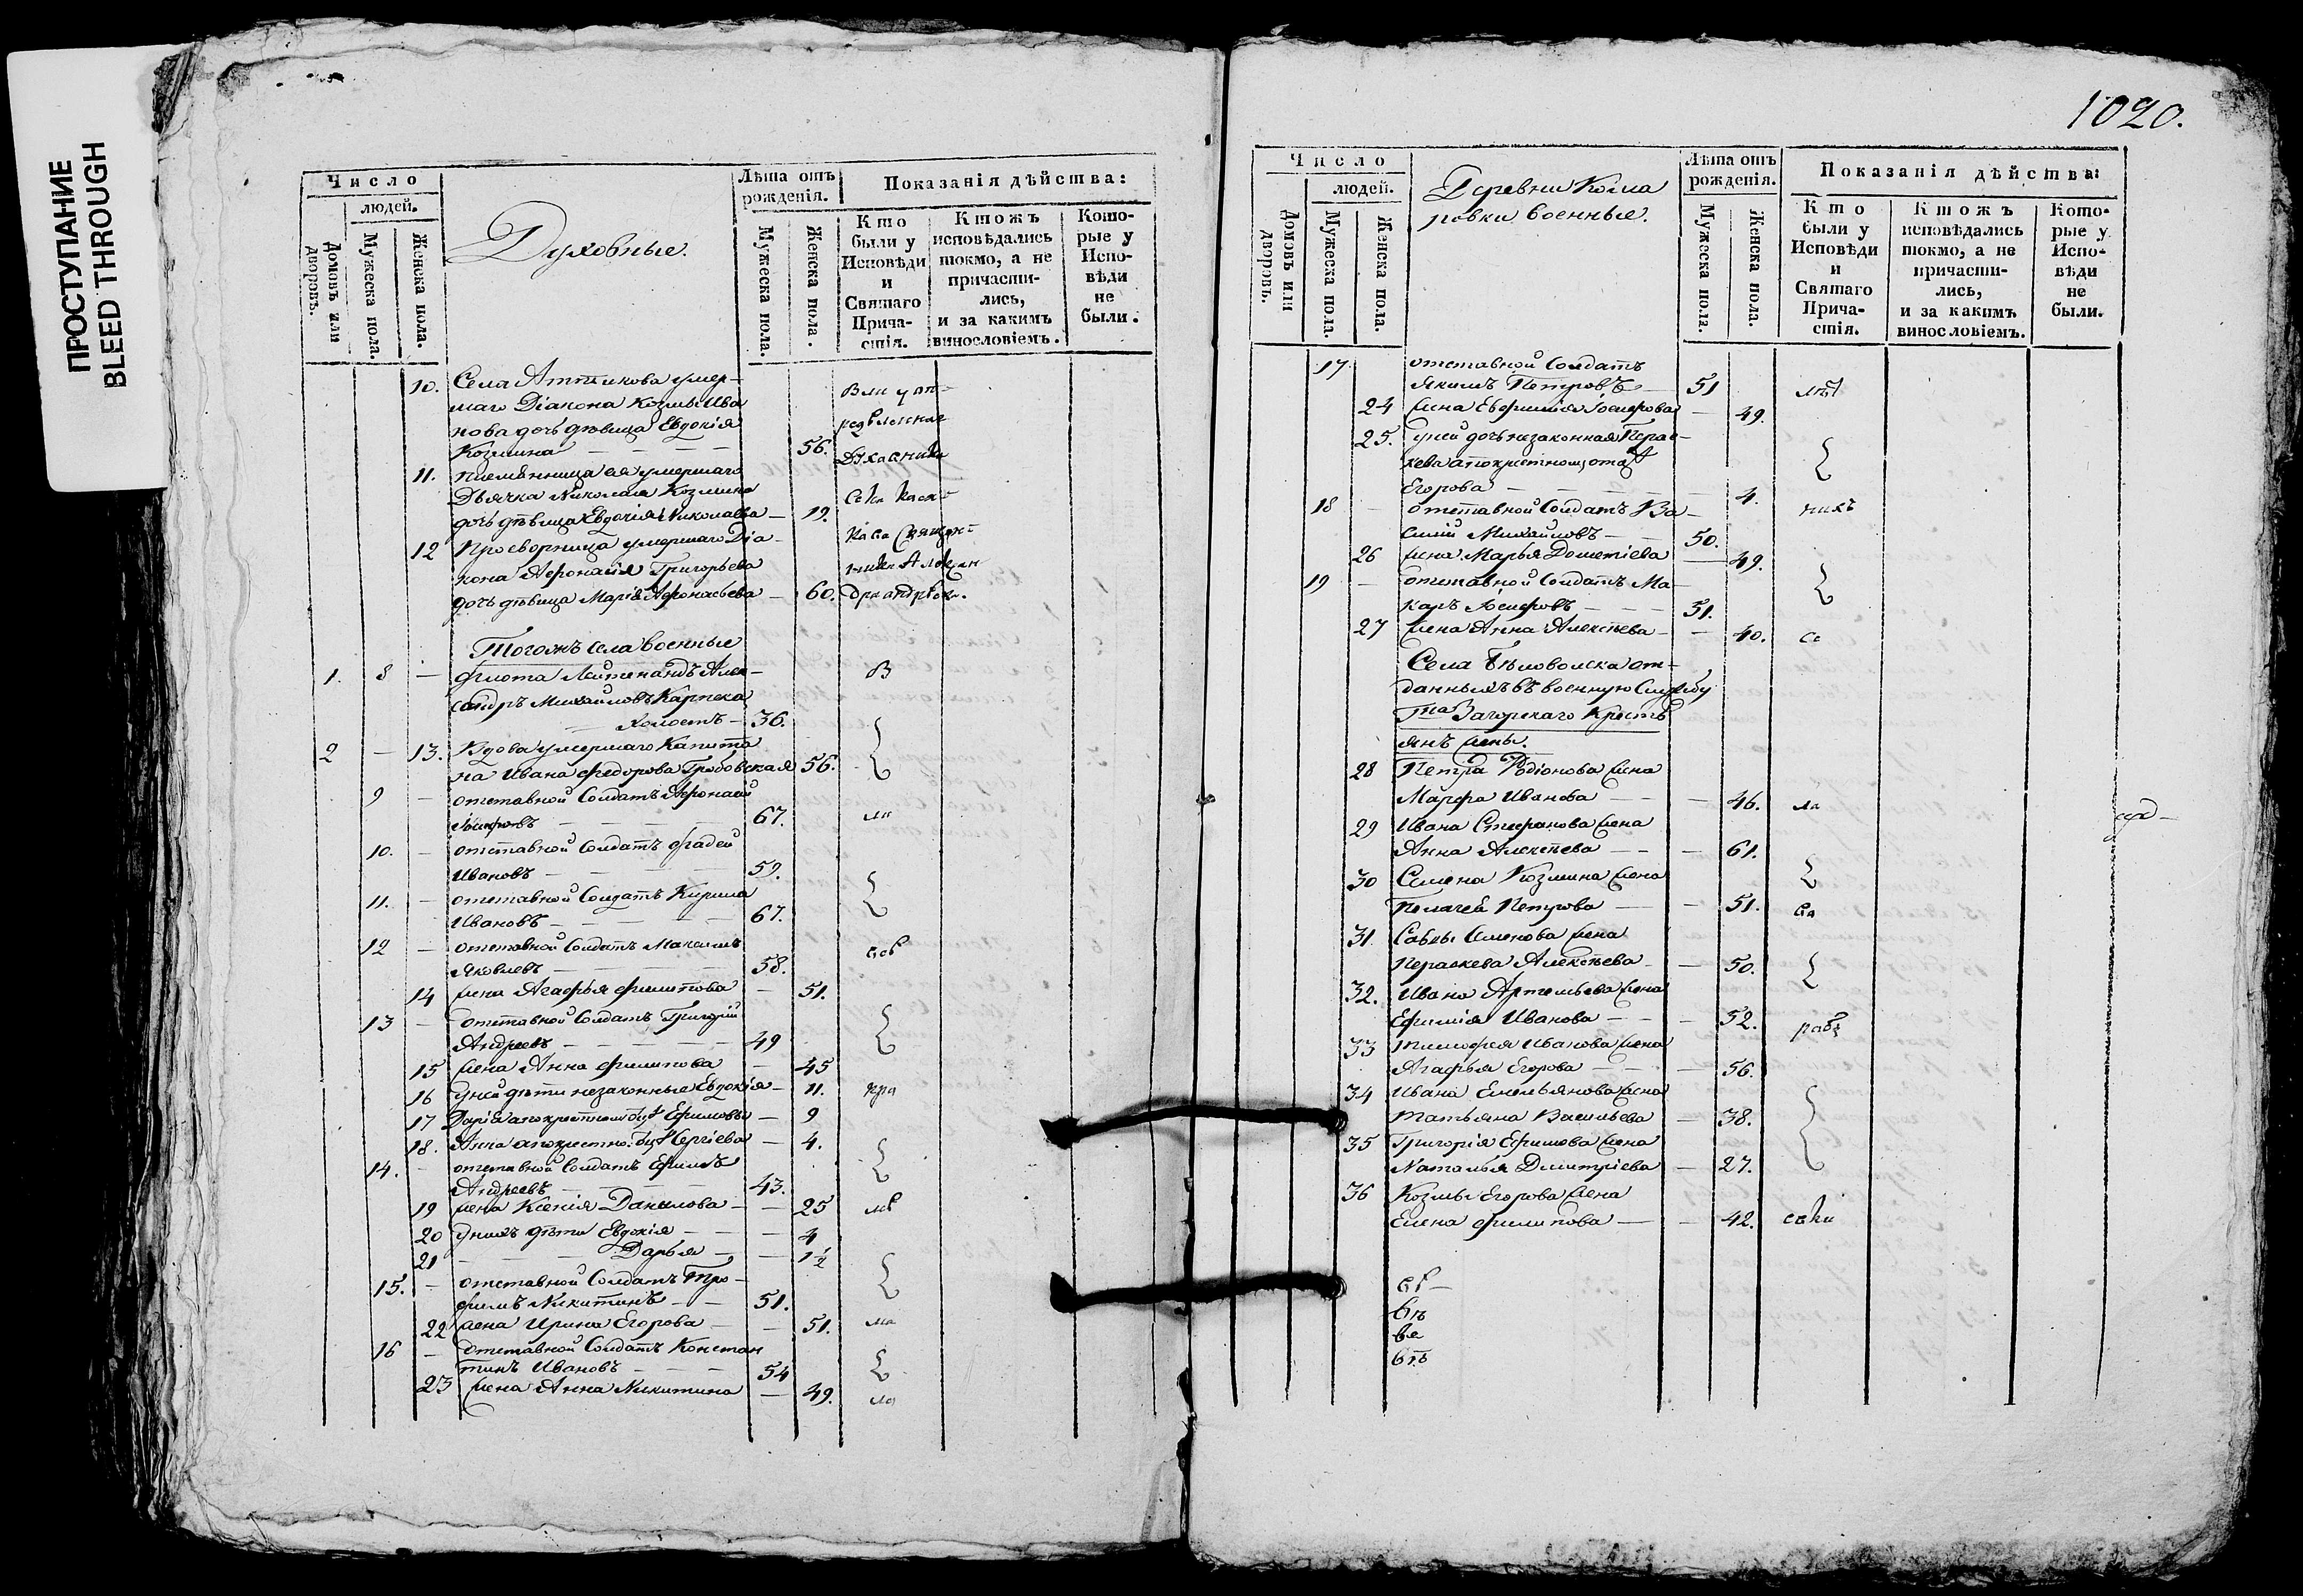 ПРОСТУПАНИЕ
BLEED THROUGH
Число
людей.
Домовъ или дворовъ.
Мужеска пола.
Женска пола.
Духовные.
Лѣта отъ рожденія.
Мужеска пола.
Женска пола.
Показанія дѣйства:
Кто были у Исповѣди и Святаго Прича-стія.
Ктожъ исповѣдались токмо, а не причасти-лись, и за какимъ винословіемъ.
Кото-рые у Испо-вѣди не были.
10. Села умер-
шаго Діакона Козмы Ива
нова дочь дѣвица Евдокія
Козмина 56.
11. племянница ея умершаго
Дьячка Николая Козмина
дочь дѣвица Евдокія Николаева 19.
12 Просворница умершаго Діа-
кона Афонасія Григорьева
дочь дѣвица Марія Афонасьева 60.
Тогожъ села военные
1. 8 — флота Лейтенандъ Алек-
сандръ Михайловъ
холостъ — 36.
2 — 13. Вдова умершаго Капита
на Ивана Федорова 56.
9 — отставной Солдатъ Афонасій
Іосифовъ 67.
10. — отставной Солдатъ Фадей
Ивановъ 59.
11. — отставной Солдатъ Кирила
Ивановъ 67.
12 — отставной Солдатъ Максимъ
Яковлевъ 58.
14 жена Агафья Филипова — 51.
13 — отставной Солдатъ Григорій
Андреевъ 49
15 жена Анна Филипова — 45
16 у ней дѣти незаконные Евдокія — 11.
17 Дарія Ефимовы — 9
18. Анна Сергіева — 4.
14. — отставной Солдатъ Ефимъ
Андреевъ 43.
19 жена Ксенія Данилова — 25
20 у нихъ дѣти Евдокія — 4
21 Дарья — 1½
15. — отставной Солдатъ Тро-
фимъ Никитинъ 51.
22 жена Ирина Егорова — 51.
16 — отставной Солдатъ Констан
тинъ Ивановъ 54
23 жена Анна Никитина — 49.
1020.
Число
людей.
Домовъ или дворовъ.
Мужеска пола.
Женска пола.
Деревни Кома
ровки военные.
Лѣта отъ рожденія.
Мужеска пола.
Женска пола.
Показанія дѣйства:
Кто были у Исповѣди и Святаго Прича-стія.
Ктожъ исповѣдались токмо, а не причасти-лись, и за какимъ винословіемъ.
Кото-рые у Испо-вѣди не были.
17 отставной Солдатъ
Якимъ Петровъ 51
24 жена Евфимія Іосифова — 49.
25. у ней дочь незаконная Перас-
кева
Егорова 4.
18 — отставной Солдатъ Ва-
силій Михайловъ 50.
26 жена Марья Дометіева — 49.
19 — отставной Солдатъ Ма-
каръ Іосифовъ 51.
27 жена Анна Алексѣева — 40.
Села Бѣловолска от-
данныхъ въ военную Службу
Гна Загорскаго Кресть
янъ жены.
28 Петра Родіонова жена
Марфа Иванова — 46.
29 Ивана Стефанова жена
Анна Алексѣева — 61.
30 Семена Козмина жена
Пелагея Петрова — 51.
31 Савы Семенова жена
Пераскева Алексѣева — 50.
32. Ивана Артемьева жена
Ефимія Иванова — 52.
33 Тимофея Иванова жена
Агафья Егорова — 56.
34 Ивана Емельянова жена
Татьяна Васильева — 38.
35 Григорія Ефимова жена
Наталья Димитріева — 27.
36 Козмы Егорова жена
Елена Филипова — 42.